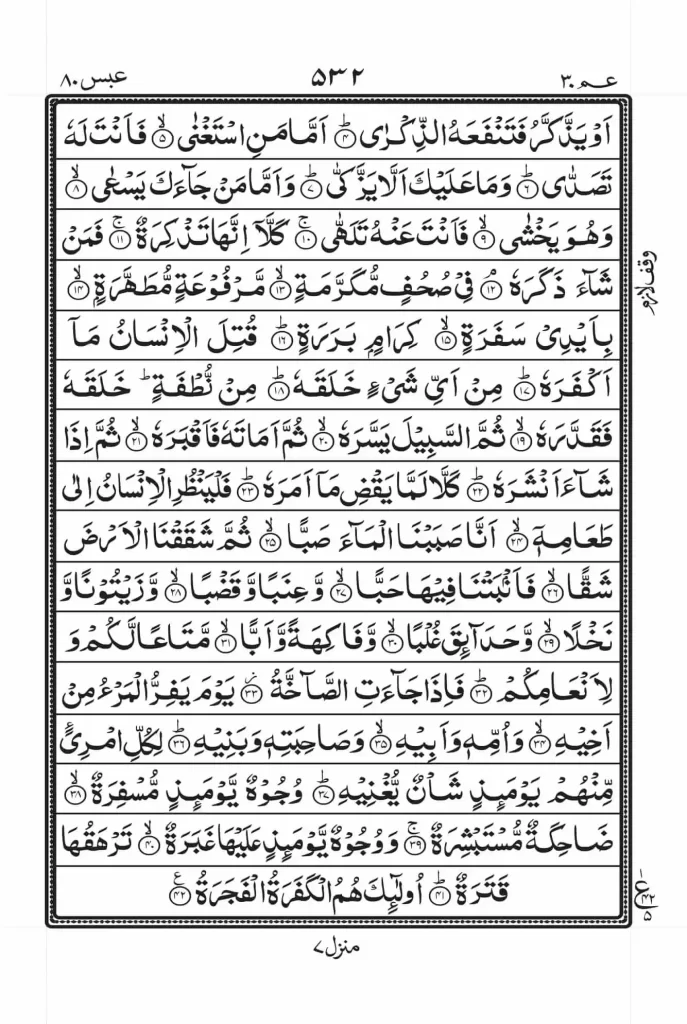 عبس ٨٠ ۵۳۲ عم ٣٠
اَوْ يَذَّكَّرُ فَتَنْفَعَهُ الذِّكْرٰى ؕ﴿۴﴾ اَمَّا مَنِ اسْتَغْنٰى ۙ﴿۵﴾ فَاَنْتَ لَهٗ
تَصَدّٰى ؕ﴿۶﴾ وَمَا عَلَيْكَ اَلَّا يَزَّكّٰى ؕ﴿۷﴾ وَاَمَّا مَنْ جَآءَكَ يَسْعٰى ۙ﴿۸﴾
وَهُوَ يَخْشٰى ۙ﴿۹﴾ فَاَنْتَ عَنْهُ تَلَهّٰى ۚ﴿۱۰﴾ كَلَّاۤ اِنَّهَا تَذْكِرَةٌ ۚ﴿۱۱﴾ فَمَنْ
شَآءَ ذَكَرَهٗ ۘ﴿۱۲﴾ فِىْ صُحُفٍ مُّكَرَّمَةٍ ۙ﴿۱۳﴾ مَّرْفُوْعَةٍ مُّطَهَّرَةٍۭ ۙ﴿۱۴﴾
وقف لازم
بِاَيْدِىْ سَفَرَةٍ ۙ﴿۱۵﴾ كِرَامٍۭ بَرَرَةٍ ؕ﴿۱۶﴾ قُتِلَ الْاِنْسَانُ مَاۤ
اَكْفَرَهٗ ؕ﴿۱۷﴾ مِنْ اَىِّ شَىْءٍ خَلَقَهٗ ؕ﴿۱۸﴾ مِنْ نُّطْفَةٍ ؕ خَلَقَهٗ
فَقَدَّرَهٗ ۙ﴿۱۹﴾ ثُمَّ السَّبِيْلَ يَسَّرَهٗ ۙ﴿۲۰﴾ ثُمَّ اَمَاتَهٗ فَاَقْبَرَهٗ ۙ﴿۲۱﴾ ثُمَّ اِذَا
شَآءَ اَنْشَرَهٗ ؕ﴿۲۲﴾ كَلَّا لَمَّا يَقْضِ مَاۤ اَمَرَهٗ ؕ﴿۲۳﴾ فَلْيَنْظُرِ الْاِنْسَانُ اِلٰى
طَعَامِهٖۤ ۙ﴿۲۴﴾ اَنَّا صَبَبْنَا الْمَآءَ صَبًّا ۙ﴿۲۵﴾ ثُمَّ شَقَقْنَا الْاَرْضَ
شَقًّا ۙ﴿۲۶﴾ فَاَنْۢبَتْنَا فِيْهَا حَبًّا ۙ﴿۲۷﴾ وَّعِنَبًا وَّقَضْبًا ۙ﴿۲۸﴾ وَّزَيْتُوْنًا وَّ
نَخْلًا ۙ﴿۲۹﴾ وَّحَدَآئِقَ غُلْبًا ۙ﴿۳۰﴾ وَّفَاكِهَةً وَّاَبًّا ۙ﴿۳۱﴾ مَّتَاعًا لَّكُمْ وَ
لِاَنْعَامِكُمْ ؕ﴿۳۲﴾ فَاِذَا جَآءَتِ الصَّآخَّةُ ؗ﴿۳۳﴾ يَوْمَ يَفِرُّ الْمَرْءُ مِنْ
اَخِيْهِ ۙ﴿۳۴﴾ وَاُمِّهٖ وَاَبِيْهِ ۙ﴿۳۵﴾ وَصَاحِبَتِهٖ وَبَنِيْهِ ؕ﴿۳۶﴾ لِكُلِّ امْرِئٍ
مِّنْهُمْ يَوْمَئِذٍ شَاْنٌ يُّغْنِيْهِ ؕ﴿۳۷﴾ وُجُوْهٌ يَّوْمَئِذٍ مُّسْفِرَةٌ ۙ﴿۳۸﴾
ضَاحِكَةٌ مُّسْتَبْشِرَةٌ ۚ﴿۳۹﴾ وَوُجُوْهٌ يَّوْمَئِذٍ عَلَيْهَا غَبَرَةٌ ۙ﴿۴۰﴾ تَرْهَقُهَا
قَتَرَةٌ ؕ﴿۴۱﴾ اُولٰٓئِكَ هُمُ الْكَفَرَةُ الْفَجَرَةُ ﴿۴۲﴾ع
ع ۴۲ ۵
منزل ۷